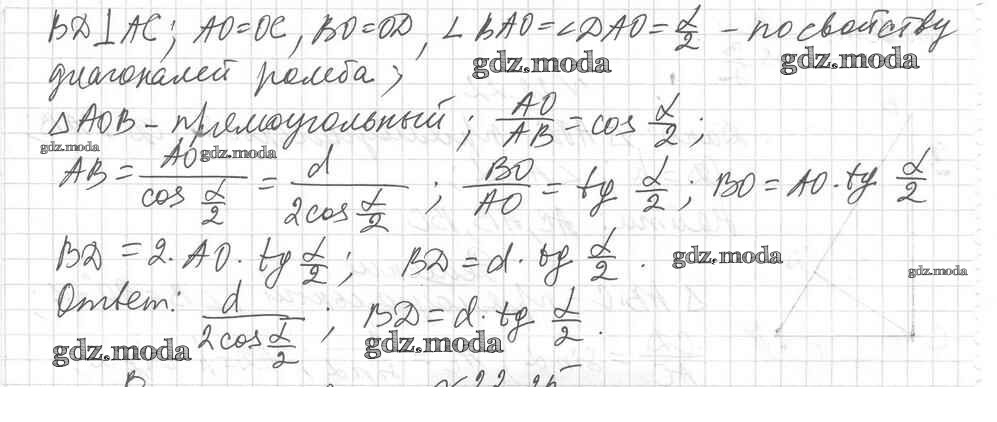 BD⊥AC; AO=OC, BO=OD, ∠BAO=∠DAO=α/2 – по свойству
gdz.moda gdz.moda
диагоналей ромба;
△AOB – прямоугольный; AO/AB = cos α/2;
gdz.moda gdz.moda
AB = AO/cos α/2 = d/2cos α/2; BO/AO = tg α/2; BO = AO·tg α/2
BD = 2·AO·tg α/2; BD = d·tg α/2.
gdz.moda
gdz.moda
Ответ: d/2cos α/2; BD = d·tg α/2.
gdz.moda gdz.moda